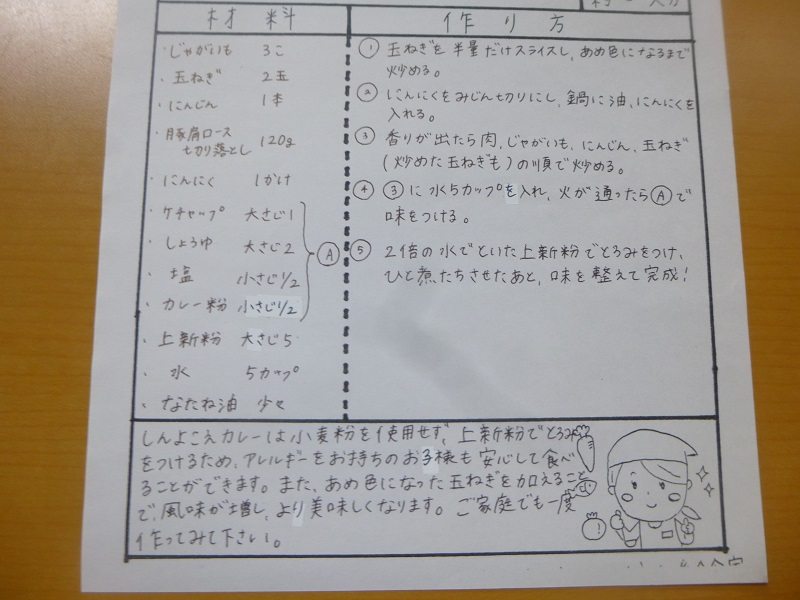 材料
作り方
・じゃがいも 3こ
・玉ねぎ 2玉
・にんじん 1本
・豚肩ロース
切り落とし 120g
・にんにく 1かけ
・ケチャップ 大さじ1
・しょうゆ 大さじ2
・塩 小さじ1/2
・カレー粉 小さじ1/2
Ⓐ
・上新粉 大さじ5
・水 5カップ
・なたね油 少々
① 玉ねぎを半量だけスライスし、あめ色になるまで
炒める。
② にんにくをみじん切りにし、鍋に油、にんにくを
入れる。
③ 香りが出たら肉、じゃがいも、にんじん、玉ねぎ
(炒めた玉ねぎも)の順で炒める。
④ ③に水5カップを入れ、火が通ったらⒶで
味をつける。
⑤ 2倍の水でといた上新粉でとろみをつけ、
ひと煮たちさせたあと、味を整えて完成!
しんよこえカレーは小麦粉を使用せず、上新粉でとろみ
をつけるため、アレルギーをお持ちのお子様も安心して食べ
ることができます。また、あめ色になった玉ねぎを加えること
で、風味が増し、より美味しくなります。ご家庭でも一度
作ってみて下さい。